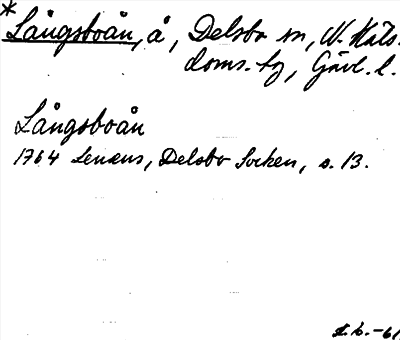 *Långsboån, å, Delsbo sn, N. Häls.
doms. tg, Gävl. l.
Långsboån
1764 Lenæus, Delsbo Socken, s. 13.
-61